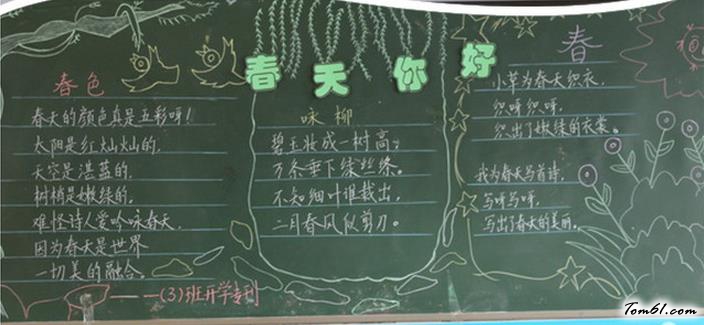 春天你好
春色
春天的颜色真是五彩呀！
太阳是红灿灿的，
天空是湛蓝的，
树梢是嫩绿的，
难怪诗人爱吟咏春天，
因为春天是世界
一切美的融合。
——(3)班开学专刊
咏柳
碧玉妆成一树高，
万条垂下绿丝绦。
不知细叶谁裁出，
二月春风似剪刀。
春
小草为春天织衣，
织呀织呀，
织出了嫩绿的衣裳。
我为春天写首诗，
写呀写呀，
写出了春天的美丽。
Tom61.com